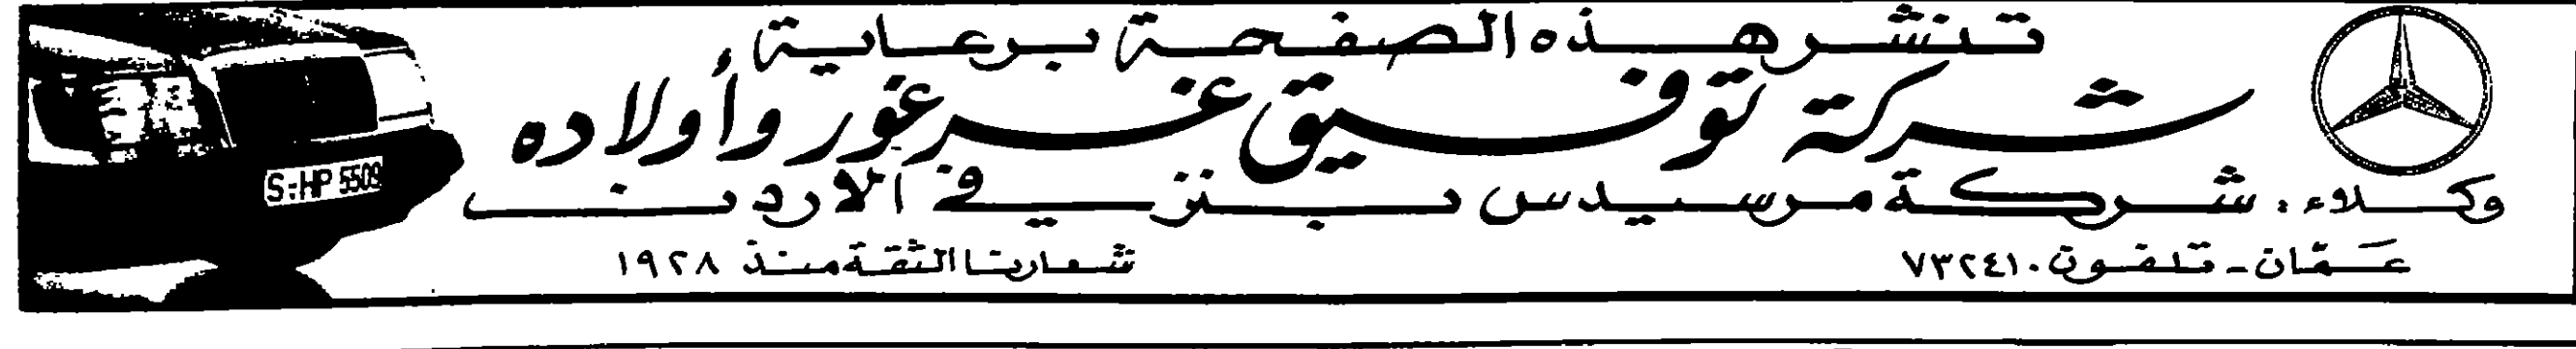 تنشر هذه الصفحة برعاية
شركة توفيق غرغور وأولاده
وكلاء: شركة مرسيدس بنز في الاردن
عَمّان - تلفون ٧٣٢٤١٠
شعارنا الثقة منذ ١٩٢٨
S-HP 5509